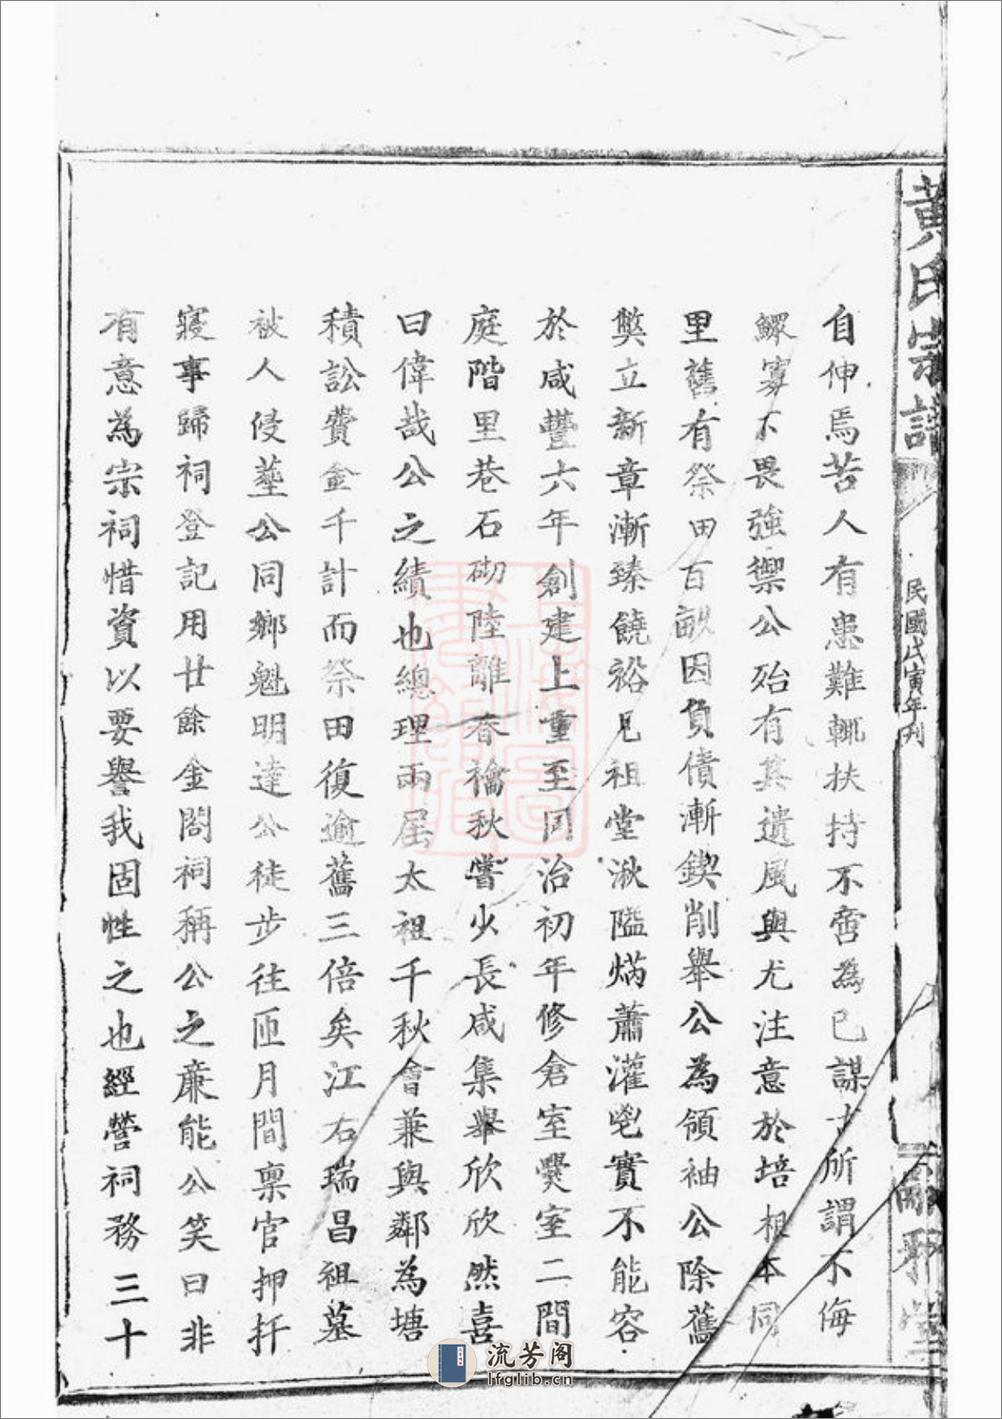 黃氏宗譜
民國戊寅年刊
思邪堂
自伸焉苦人有患難輒扶持不啻為己謀 所謂不侮
鰥寡不畏強禦公殆有其遺風與尤注意於培根本同
里舊有祭田百畝因負債漸鍥削舉公為領袖公除舊
獘立新章漸臻饒裕見祖堂湫隘焫蕭灌鬯實不能容
於咸豐六年創建上重至同治初年修倉室爨室二間
庭階里巷石砌陸離春禴秋嘗少長咸集舉欣欣然喜
曰偉哉公之績也總理兩屆太祖千秋會兼與鄰為塘
積訟費金千計而祭田復逾舊三倍矣江右瑞昌祖墓
被人侵塟公同鄉魁明達公徒步往匝月間稟官押扦
寢事歸祠登記用廿餘金閤祠稱公之廉能公笑曰非
有意為宗祠惜資以要譽我固性之也經營祠務三十
流芳阁
lfglib.cn